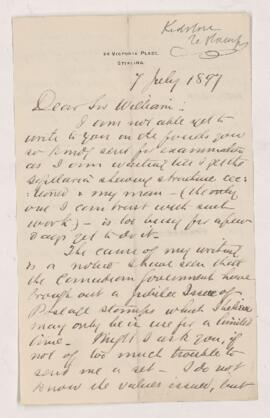 Kidston
24 VICTORIA PLACE,
STIRLING.
7 July 1897
Dear Sir William:
I am not able yet to
write to you on the fossils you
so kindly sent for examination
as I am waiting till I get the
showing structure sec-
tioned & my man – (the only
one I can trust with such
work) – is too busy for a few
days yet to do it.
The cause of my writing
is a notice I have seen that
the Canadian Government have
brought out a Jubilee Issue of
Postage stamps which I believe
may only be in use for a limited
time – Might I ask you, if
not of too much trouble to
send me a set – I do not
know the values issued, but